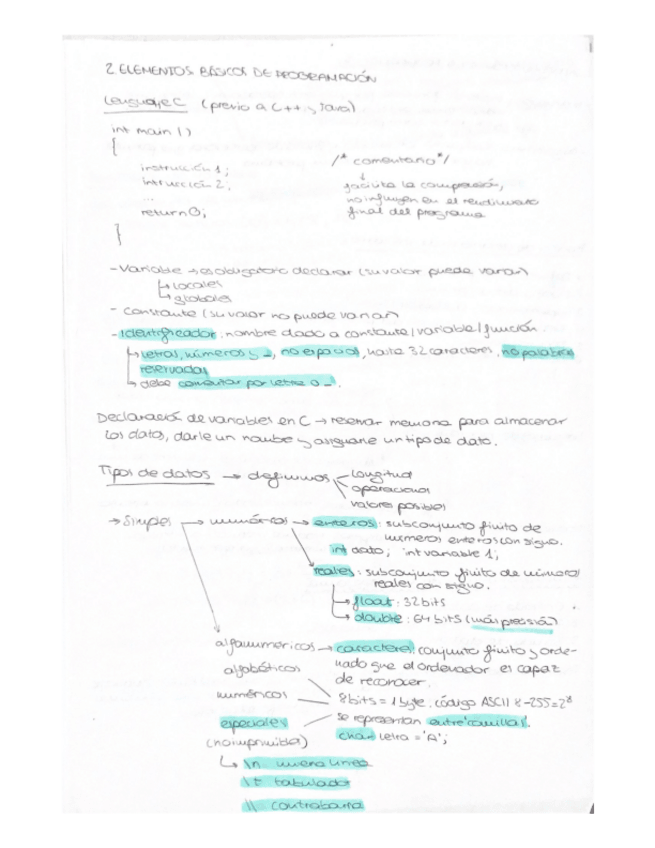 2 ELEMENTOS BÁSICOS DE PROGRAMACIÓN
Lenguaje C (previo a C++ y Java)
int main ()
{
instrucción 1;
intrucción 2;
...
return 0;
}
/* comentario */
facilita la comprensión,
no influyen en el rendimiento
final del programa
- Variable → es obligatorio declarar (su valor puede variar)
↳ locales
↳ globales
- Constante (su valor no puede variar)
- Identificador: nombre dado a constante/variable/función.
↳ letras, números y _, no espacios, hasta 32 caracteres, no palabras
reservadas
↳ debe comenzar por letra o _.
Declaración de variables en C → reservar memoria para almacenar
los datos, darle un nombre y asignarle un tipo de dato.
Tipos de datos → definimos
longitud
operaciones
valores posibles
→ Simples → numéricos → enteros: subconjunto finito de
números enteros con signo.
int dato; int variable 1;
reales: subconjunto finito de números
reales con signo.
↳ float: 32 bits
↳ double: 64 bits (más precisión)
alfanuméricos → caracteres: conjunto finito y orde-
nado que el ordenador es capaz
de reconocer.
alfabéticos
numéricos
especiales
(no imprimibles)
8 bits = 1 byte. código ASCII
se representan entre 'comillas'.
char letra = 'A';
↳ \n nueva línea
\t tabulador
\\ contrabarra